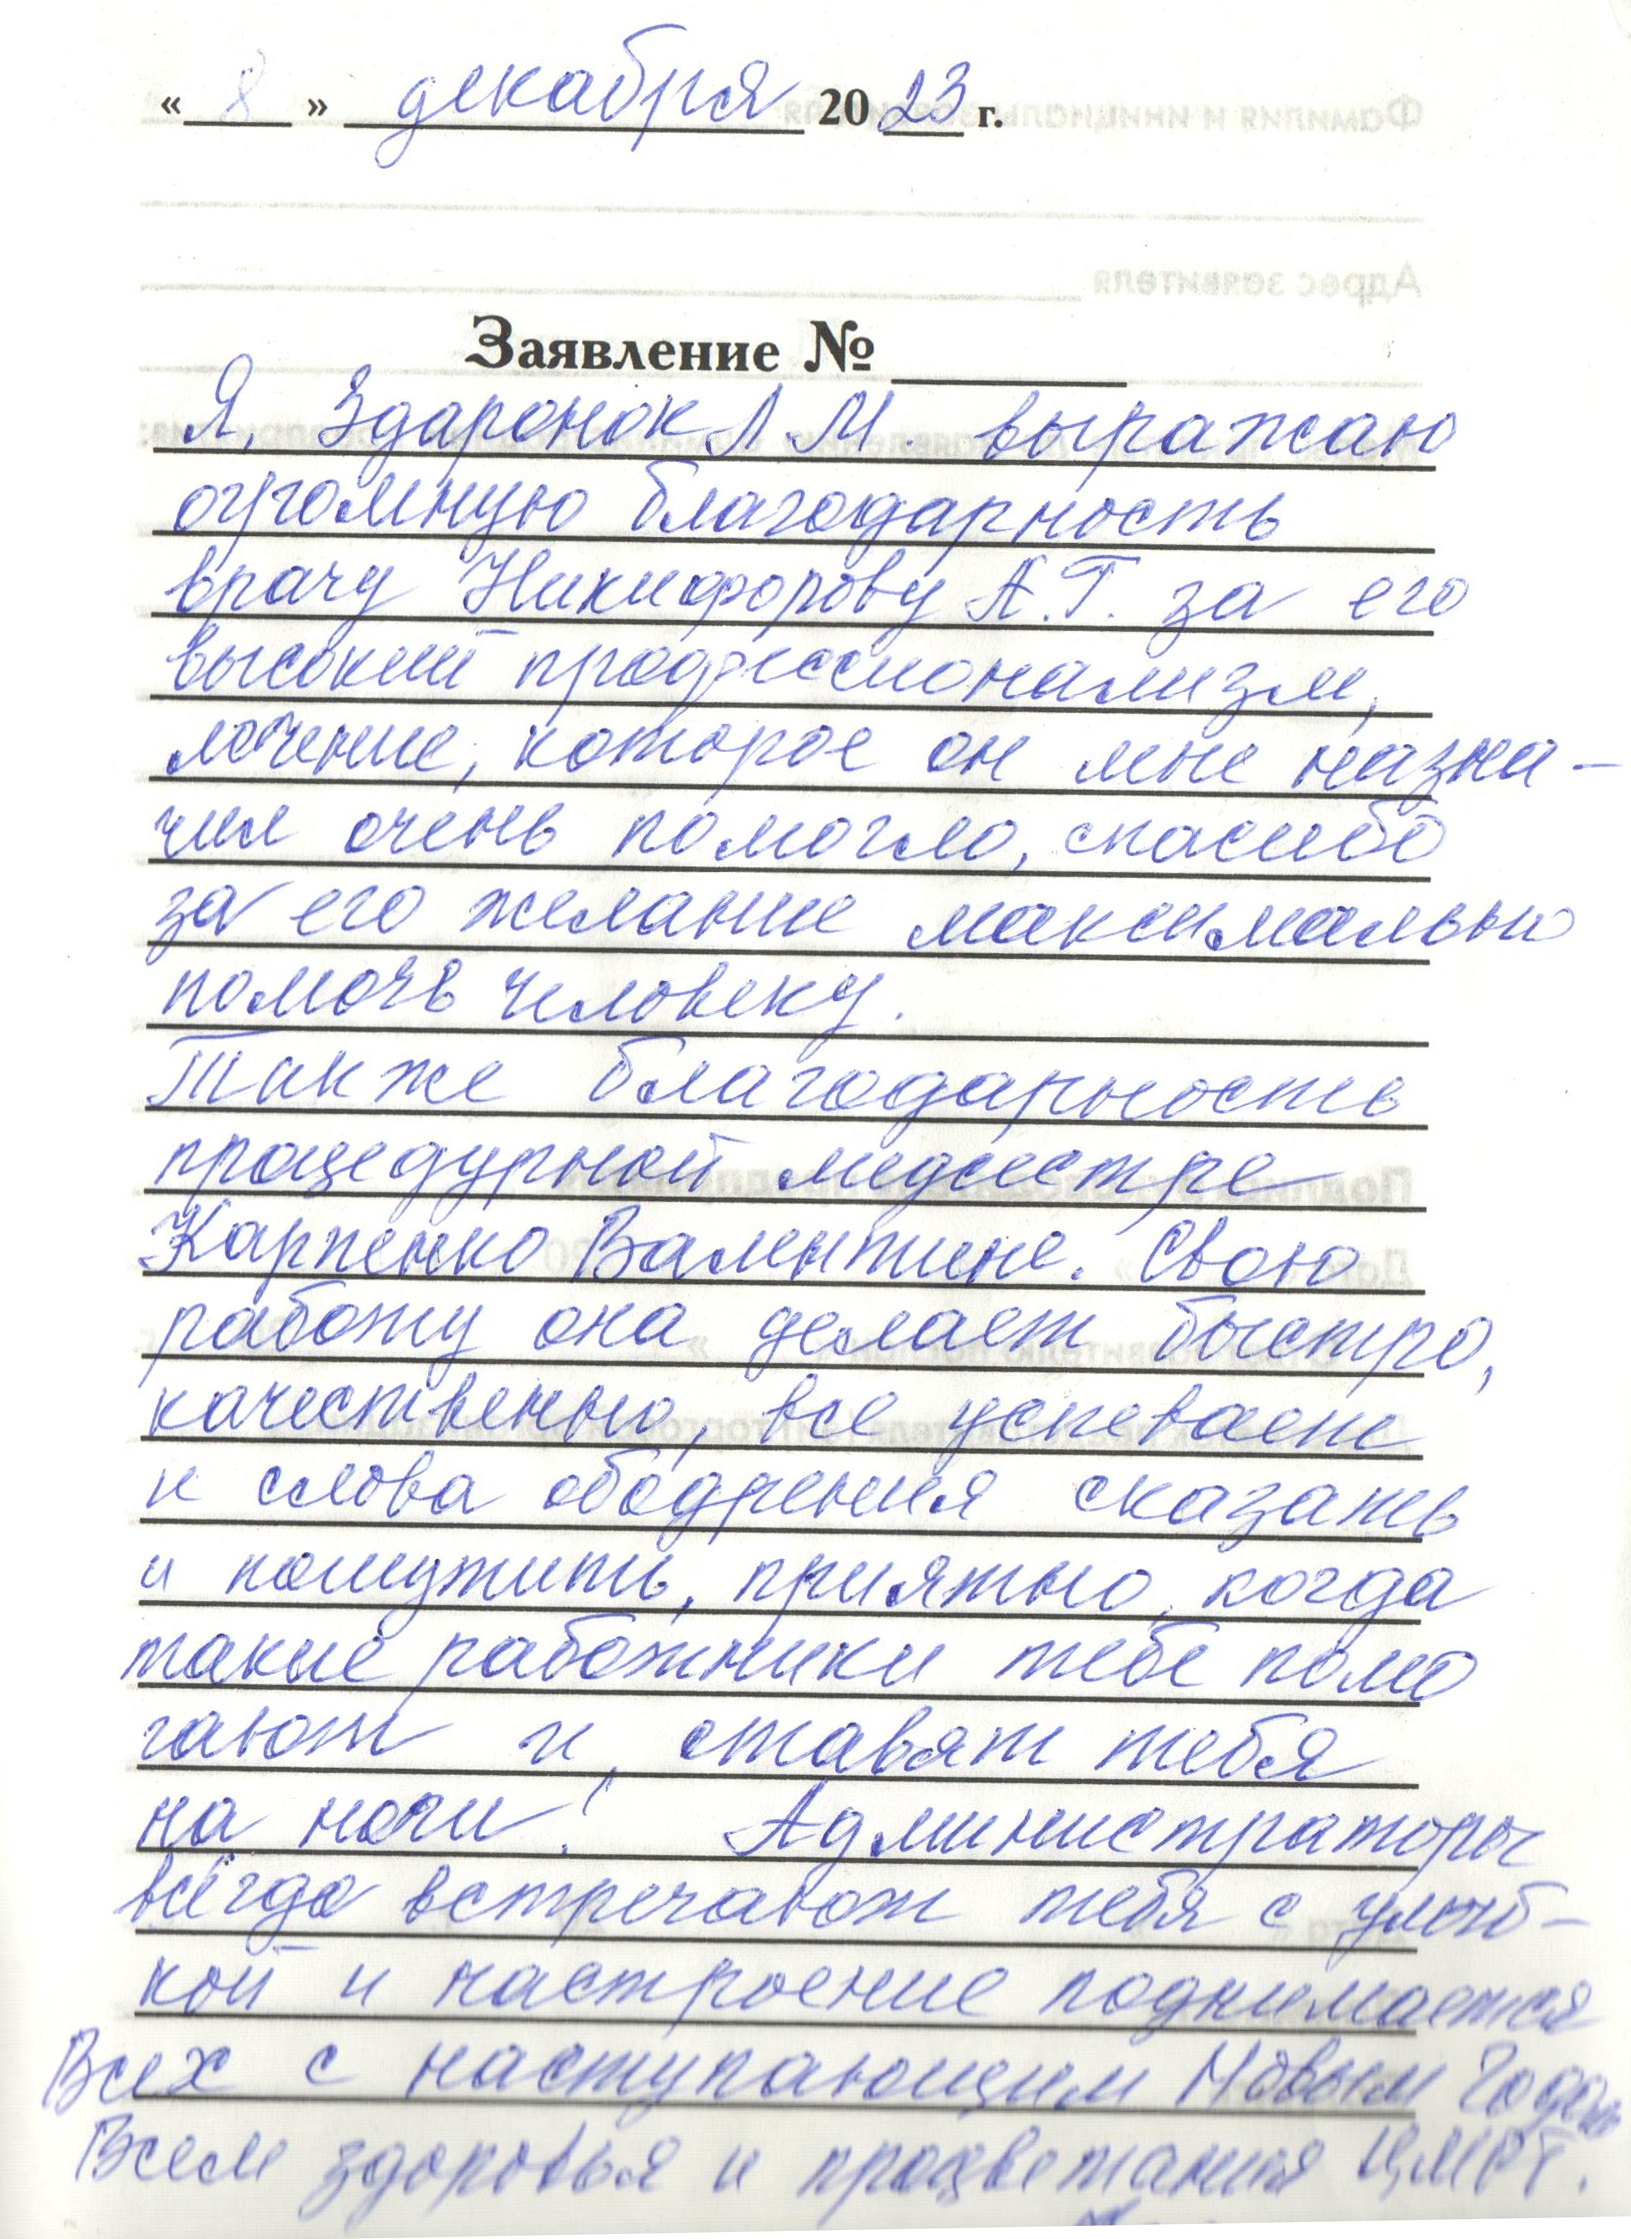 « 8 » декабря 2023 г.
Заявление №
Я, Здаронок Л.М. выражаю
огромную благодарность
врачу Никифорову А.Г. за его
высокий профессионализм,
лечение, которое он мне назна-
чил очень помогло, спасибо
за его желание максимально
помочь человеку.
Также благодарность
процедурной медсестре
Карпенко Валентине. Свою
работу она делает быстро,
качественно, все успевает
и слова ободрения сказать
и пошутить, приятно, когда
такие работники тебе помо
гают и, ставят тебя
на ноги! Администраторы
всегда встречают тебя с улыб-
кой и настроение поднимается
Всех с наступающим Новым Годом
Всем здоровья и процветания ЦМРТ.